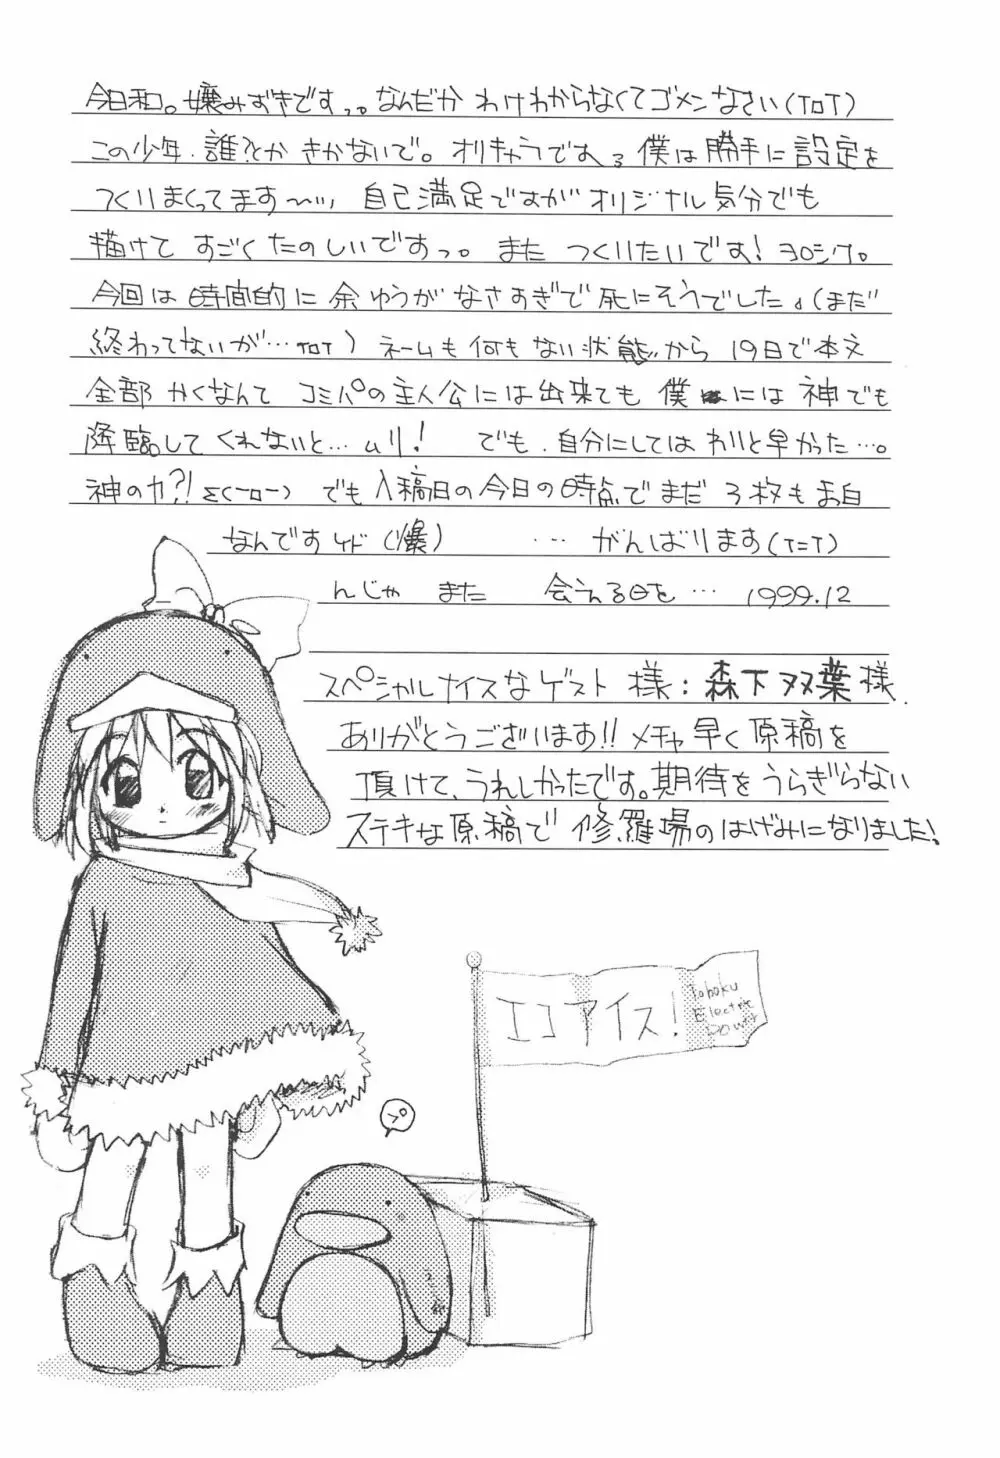 今日和。孃みずきですっ。なんだか わけわからなくてゴメンなさい(ToT)
この少年.誰?とか きかないで。オリキャラです。僕は勝手に設定を
つくりまくってます〜ッ, 自己満足ですが オリジナル気分でも
描けて すごくたのしいですっ。また つくりたいです! ヨロシク。
今回は時間的に余ゆうがなさすぎで死にそうでした。(まだ
終わってないが…ToT) ネームも何もない状態から 19日で本文
全部かくなんて コミパの主人公には出来ても 僕には神でも
降臨してくれないと…ムリ! でも.自分にしてはわりと早かった…。
神の力?! Σ(ーロー) でも入稿日の今日の時点でまだ3枚もま白
なんですケド(爆) … がんばります(T=T)
んじゃ また 会える日を… 1999.12
スペシャルナイスなゲスト様:森下双葉様
ありがとうございます!! メチャ早く原稿を
頂けて、うれしかったです。期待をうらぎらない
ステキな原稿で 修羅場のはげみになりました!
エコアイス!
Tohoku
Electric
Power